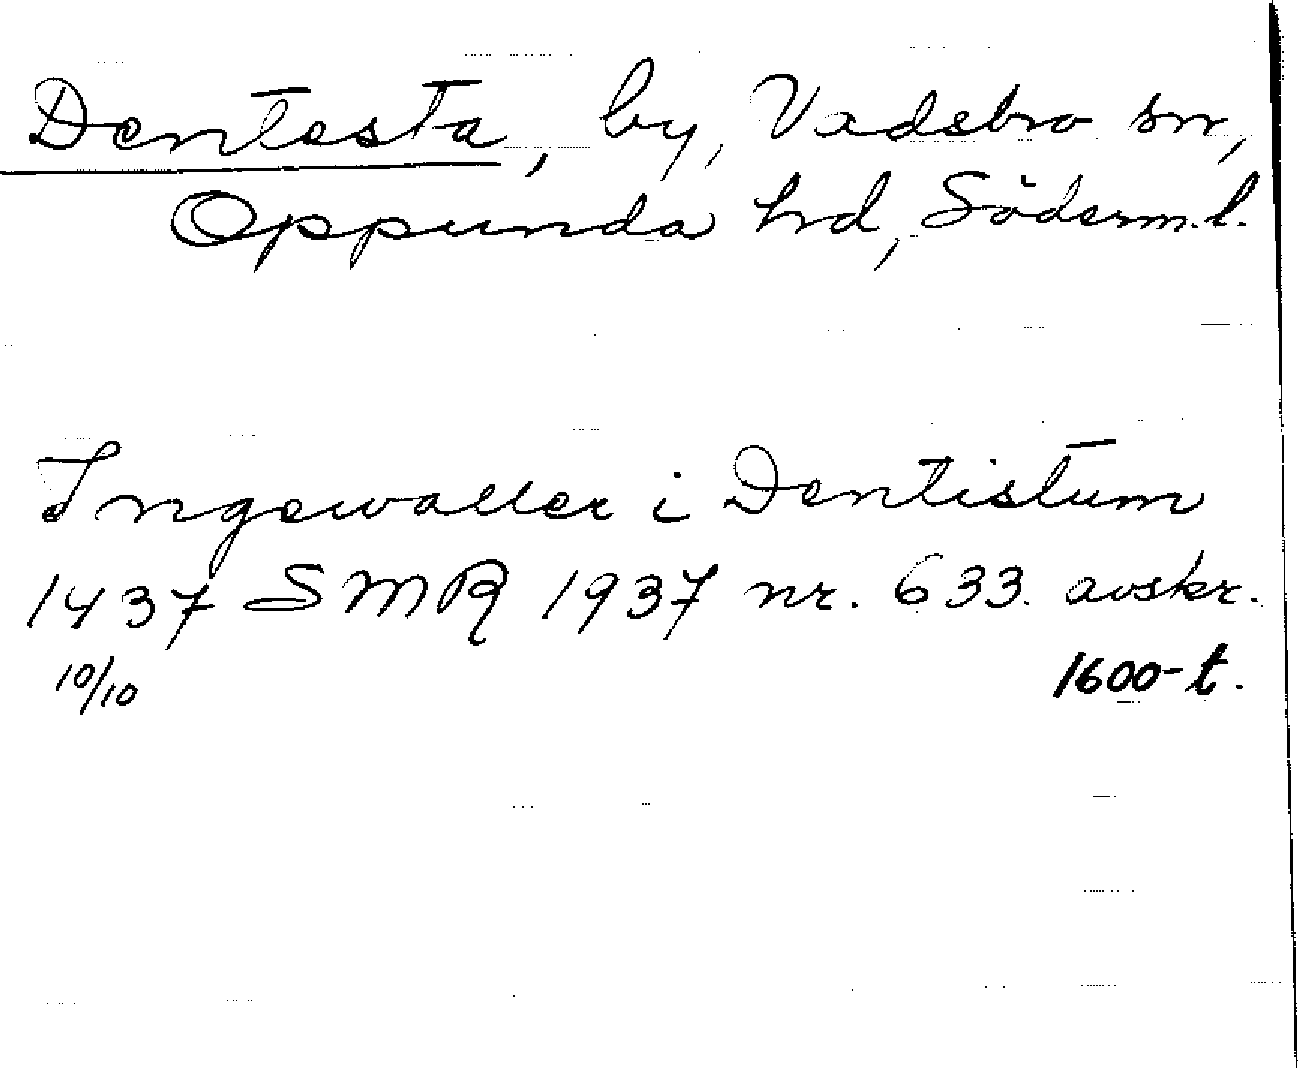 Dentesta, by, Vadsbro sn,
Oppunda hd, Söderm.l.
Ingewaller i Dentistum
1437 SMR 1937 nr. 633 avskr.
10/10 1600-t.